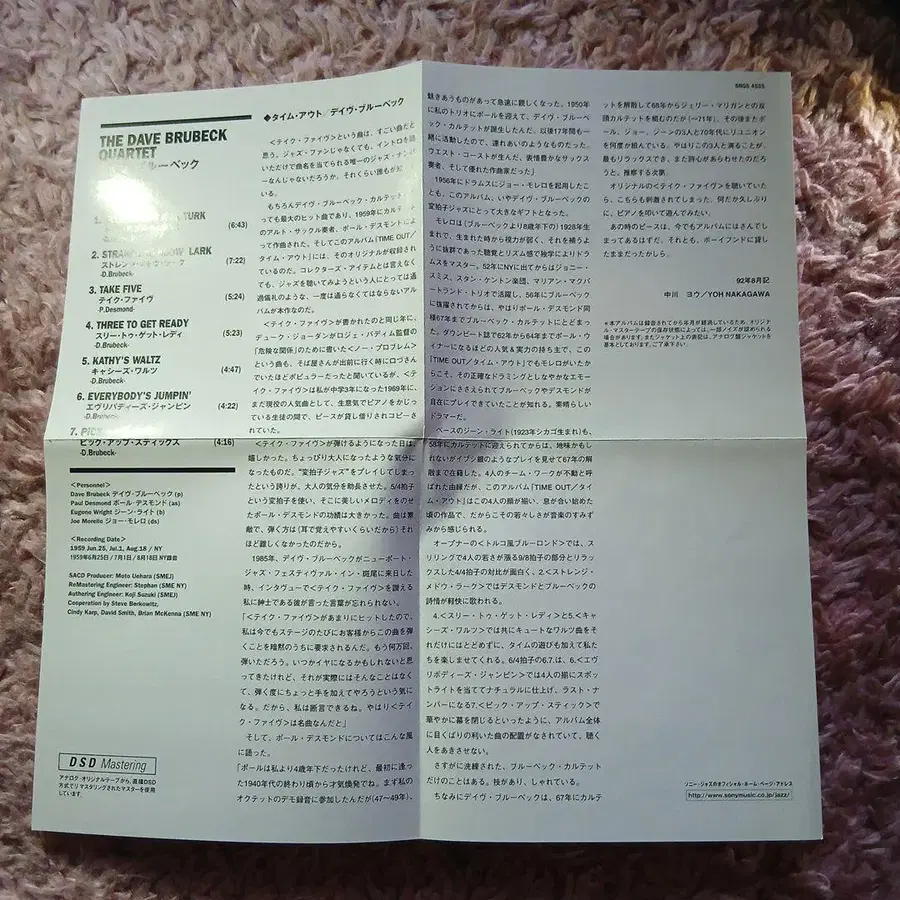 THE DAVE BRUBECK
QUARTET
ルーベック
TURK
(6:43)
LARK
(7:22)
-D.Brubeck-
3. TAKE FIVE
テイク・ファイヴ (5:24)
-P.Desmond-
4. THREE TO GET READY
スリー・トゥ・ゲット・レディ (5:23)
-D.Brubeck-
5. KATHY'S WALTZ
キャシーズ・ワルツ (4:47)
-D.Brubeck-
6. EVERYBODY'S JUMPIN'
エヴリバディーズ・ジャンピン (4:22)
-D.Brubeck-
7.
ピック・アップ・スティックス (4:16)
-D.Brubeck-
<Personnel>
Dave Brubeck デイヴ・ブルーベック (p)
Paul Desmond ポール・デスモンド (as)
Eugene Wright ジーン・ライト (b)
Joe Morello ジョー・モレロ (ds)
<Recording Date>
1959 Jun.25, Jul.1, Aug.18 / NY
1959年6月25日 / 7月1日 / 8月18日 NY録音
SACD Producer: Moto Uehara (SMEJ)
ReMastering Engineer: Stephan (SME NY)
Authering Engineer: Koji Suzuki (SMEJ)
Cooperation by Steve Berkowitz,
Cindy Karp, David Smith, Brian McKenna (SME NY)
DSD Mastering
アナログ・オリジナルテープから、直接DSD
方式でリマスタリングされたマスターを使用
しています。
◆タイム・アウト/デイヴ・ブルーベック
<テイク・ファイヴ>という曲は、すごい曲だと
思う。ジャズ・ファンじゃなくても、イントロを聴
いただけで曲名を当てられる唯一のジャズ・ナンバ
ーなんじゃないだろうか。それくらい誰もが知
いる。
もちろんデイヴ・ブルーベック・カルテット
っても最大のヒット曲であり、1959年にカルテ
のアルト・サックル奏者、ポール・デスモンドに
って作曲された。そしてこのアルバム「TIME OUT/
タイム・アウト」には、そのオリジナルが収録され
ているのだ。コレクターズ・アイテムとは言えなく
ても、ジャズを聴いてみようという人にとっては通
過儀礼のような、一度は通らなくてはならないアル
バムが本作なのだ。
<テイク・ファイヴ>が書かれたのと同じ年に、
デューク・ジョーダンがロジェ・バディム監督の
「危険な関係」のために書いた<ノー・プロブレム>
という曲も、そば屋さんが出前に行く時に口づさん
でいたほどポピュラーだったと聞いているが、<テ
イク・ファイヴ>は私が中学3年になった1969年に、
まだ現役の人気曲として、生意気でピアノをかじっ
ている生徒の間で、ピースが貸し借りされコピーさ
れていた。
<テイク・ファイヴ>が弾けるようになった日は、
嬉しかった。ちょっぴり大人になったような気分に
なったものだ。“変拍子ジャズ”をプレイしてしまっ
たという誇りが、大人の気分を助長させた。5/4拍子
という変拍子を使い、そこに美しいメロディをのせ
たポール・デスモンドの功績は大きかった。曲は素
敵で、弾く方は（耳で覚えやすいくらいだから）それ
ほど難しくなかったのだから。
1985年、デイヴ・ブルーベックがニューポート・
ジャズ・フェスティヴァル・イン・斑尾に来日した
時、インタヴューで<テイク・ファイヴ>を讃える
私に紳士である彼が言った言葉が忘れられない。
「<テイク・ファイヴ>があまりにヒットしたので、
私は今でもステージのたびにお客様からこの曲を弾
くことを暗黙のうちに要求されるんだ。もう何万回、
弾いただろう。いつかイヤになるかもしれないと思
ってきたけれど、それが実際にはそんなことはなく
て、弾く度にちょっと手を加えてやろうという気に
なる。だから、私は断言できるね。やはり<テイ
ク・ファイヴ>は名曲なんだと」
そして、ポール・デスモンドについてはこんな風
に語った。
「ポールは私より4歳年下だったけれど、最初に逢っ
た1940年代の終わり頃から才気煥発でね。まず私の
オクテットのデモ録音に参加したんだが(47〜49年)、
魅きあうものがあって急速に親しくなった。1950年
に私のトリオにポールを迎えて、デイヴ・ブルーベッ
ク・カルテットが誕生したんだ。以後17年間も一
緒に活動したので、連れあいのようなものだった。
ウエスト・コーストが生んだ、表情豊かなサックス
奏者、そして優れた作曲家だった」
1956年にドラムスにジョー・モレロを起用したこ
とも、このアルバム、いやデイヴ・ブルーベックの
変拍子ジャズにとって大きなギフトとなった。
モレロは（ブルーベックより8歳年下の）1928年生
まれで、生まれた時から視力が弱く、それを補うよ
うに抜群であった聴覚とリズム感で独学によりドラ
ムスをマスター。52年にNYに出てからはジョニー・
スミス、スタン・ケントン楽団、マリアン・マクパ
ートランド・トリオで活躍し、56年にブルーベック
に抜擢されてからは、やはりポール・デスモンド同
様67年までブルーベック・カルテットにとどまっ
た。ダウンビート誌で62年から64年までポール・ウ
イナーになるほどの人気&実力の持ち主で、この
「TIME OUT/タイム・アウト」でもモレロがいたか
らこそ、その正確なドラミングとしなやかなエモー
ションにささえられてブルーベックやデスモンドが
自在にプレイできていたことが知れる。素晴らしい
ドラマーだ。
ベースのジーン・ライト(1923年シカゴ生まれ)も、
58年にカルテットに迎えられてからは、地味かもし
れないがイブシ銀のようなプレイを見せて67年の解
散まで在籍した。4人のチーム・ワークが不動と呼
ばれた由縁だが、このアルバム「TIME OUT/タイ
ム・アウト」はこの4人の顔が揃い、息が合い始めた
頃の作品で、だからこその若々しさが音楽のすみず
みから感じられる。
オープナーの<トルコ風ブルーロンド>では、ス
リリングで4人の若さが漲る9/8拍子の部分とリラッ
クスした4/4拍子の対比が面白く、2.<ストレンジ・
メドウ・ラーク>ではデスモンドとブルーベックの
詩情が軽快に歌われる。
4.<スリー・トゥ・ゲット・レディ>と5.<キャ
シーズ・ワルツ>では共にキュートなワルツ曲をそ
れだけにはとどめずに、タイムの遊びも加えて私た
ちを楽しませてくれる。6/4拍子の6.7.は、6.<エヴ
リボディーズ・ジャンピン>では4人の揃にスポッ
トライトを当ててナチュラルに仕上げ、ラスト・ナ
ンバーになる7.<ピック・アップ・スティック>で
華やかに幕を閉じるといったように、アルバム全体
に目くばりの利いた曲の配置がなされていて、聴く
人をあきさせない。
さすがに洗練された、ブルーベック・カルテット
だけのことはある。技があり、しゃれている。
ちなみにデイヴ・ブルーベックは、67年にカルテ
SRGS 4535
ットを解散して68年からジェリー・マリガンとの双
頭カルテットを組むのだが(〜71年)、その後またポ
ール、ジョー、ジーンの3人と70年代にリユニオン
を何度か組んでいる。やはりこの3人と演ることが、
最もリラックスでき、また許し心があらわせたのだろ
うと、推察する次第。
オリジナルの<テイク・ファイヴ>を聴いていた
ら、こちらも刺激されてしまった。何だか久しぶり
に、ピアノを叩いて遊んでみたい。
あの時のピースは、今でもアルバムにはさんでし
まってあるはずだ。それとも、ボーイフンドに貸し
たままだったかしら。
92年8月記
中川 ヨウ/YOH NAKAGAWA
*本アルバムは録音されてから年月が経過しているため、オリジナ
ル・マスターテープの保存状態によっては、一部ノイズが認められる
場合があります。またジャケット上の表記は、アナログ盤ジャケットを
基本としております。ご了承下さい。
ソニー・ジャズのオフィシャル・ホーム・ページ・アドレス
http://www.sonymusic.co.jp/jazz/